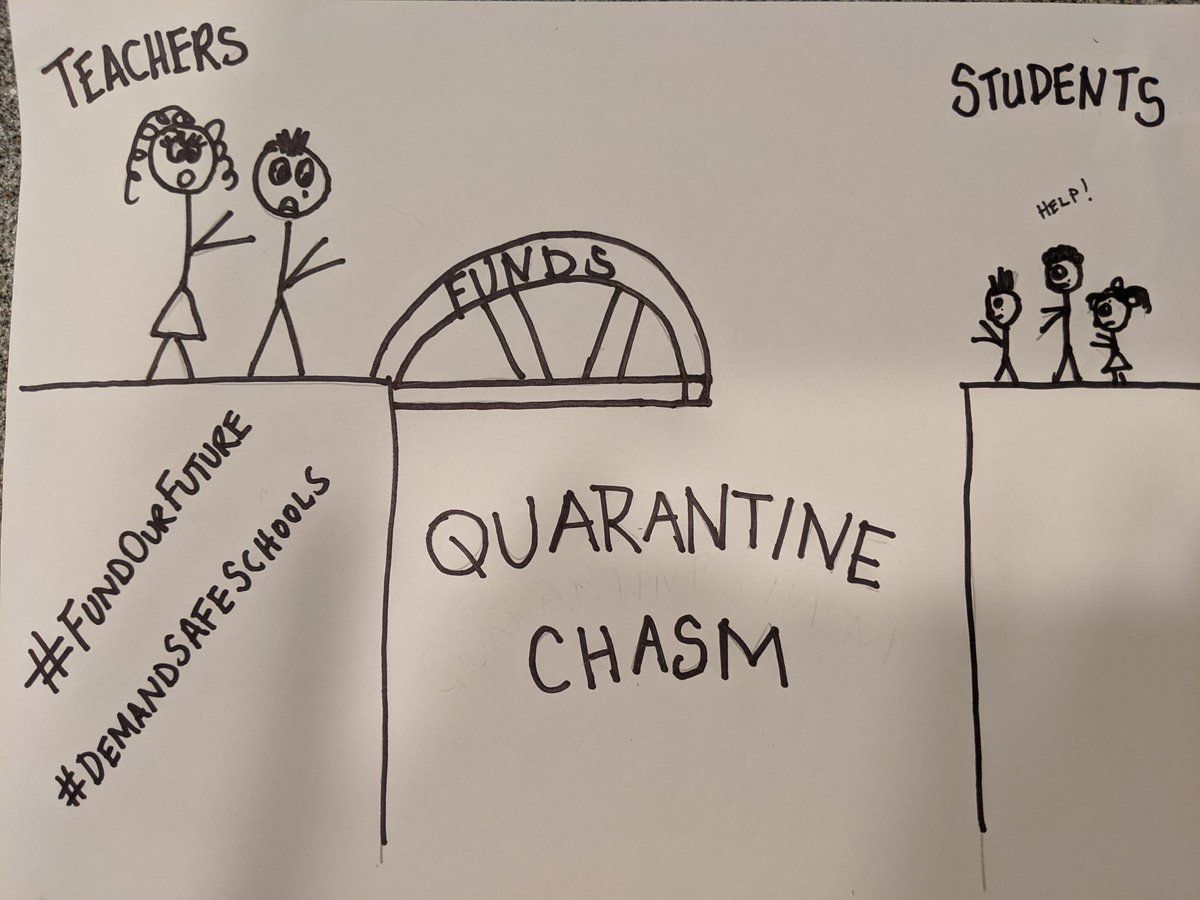 TEACHERS
STUDENTS
HELP!
FUNDS
#FUNDOURFUTURE
#DEMANDSAFESCHOOLS
QUARANTINE
CHASM